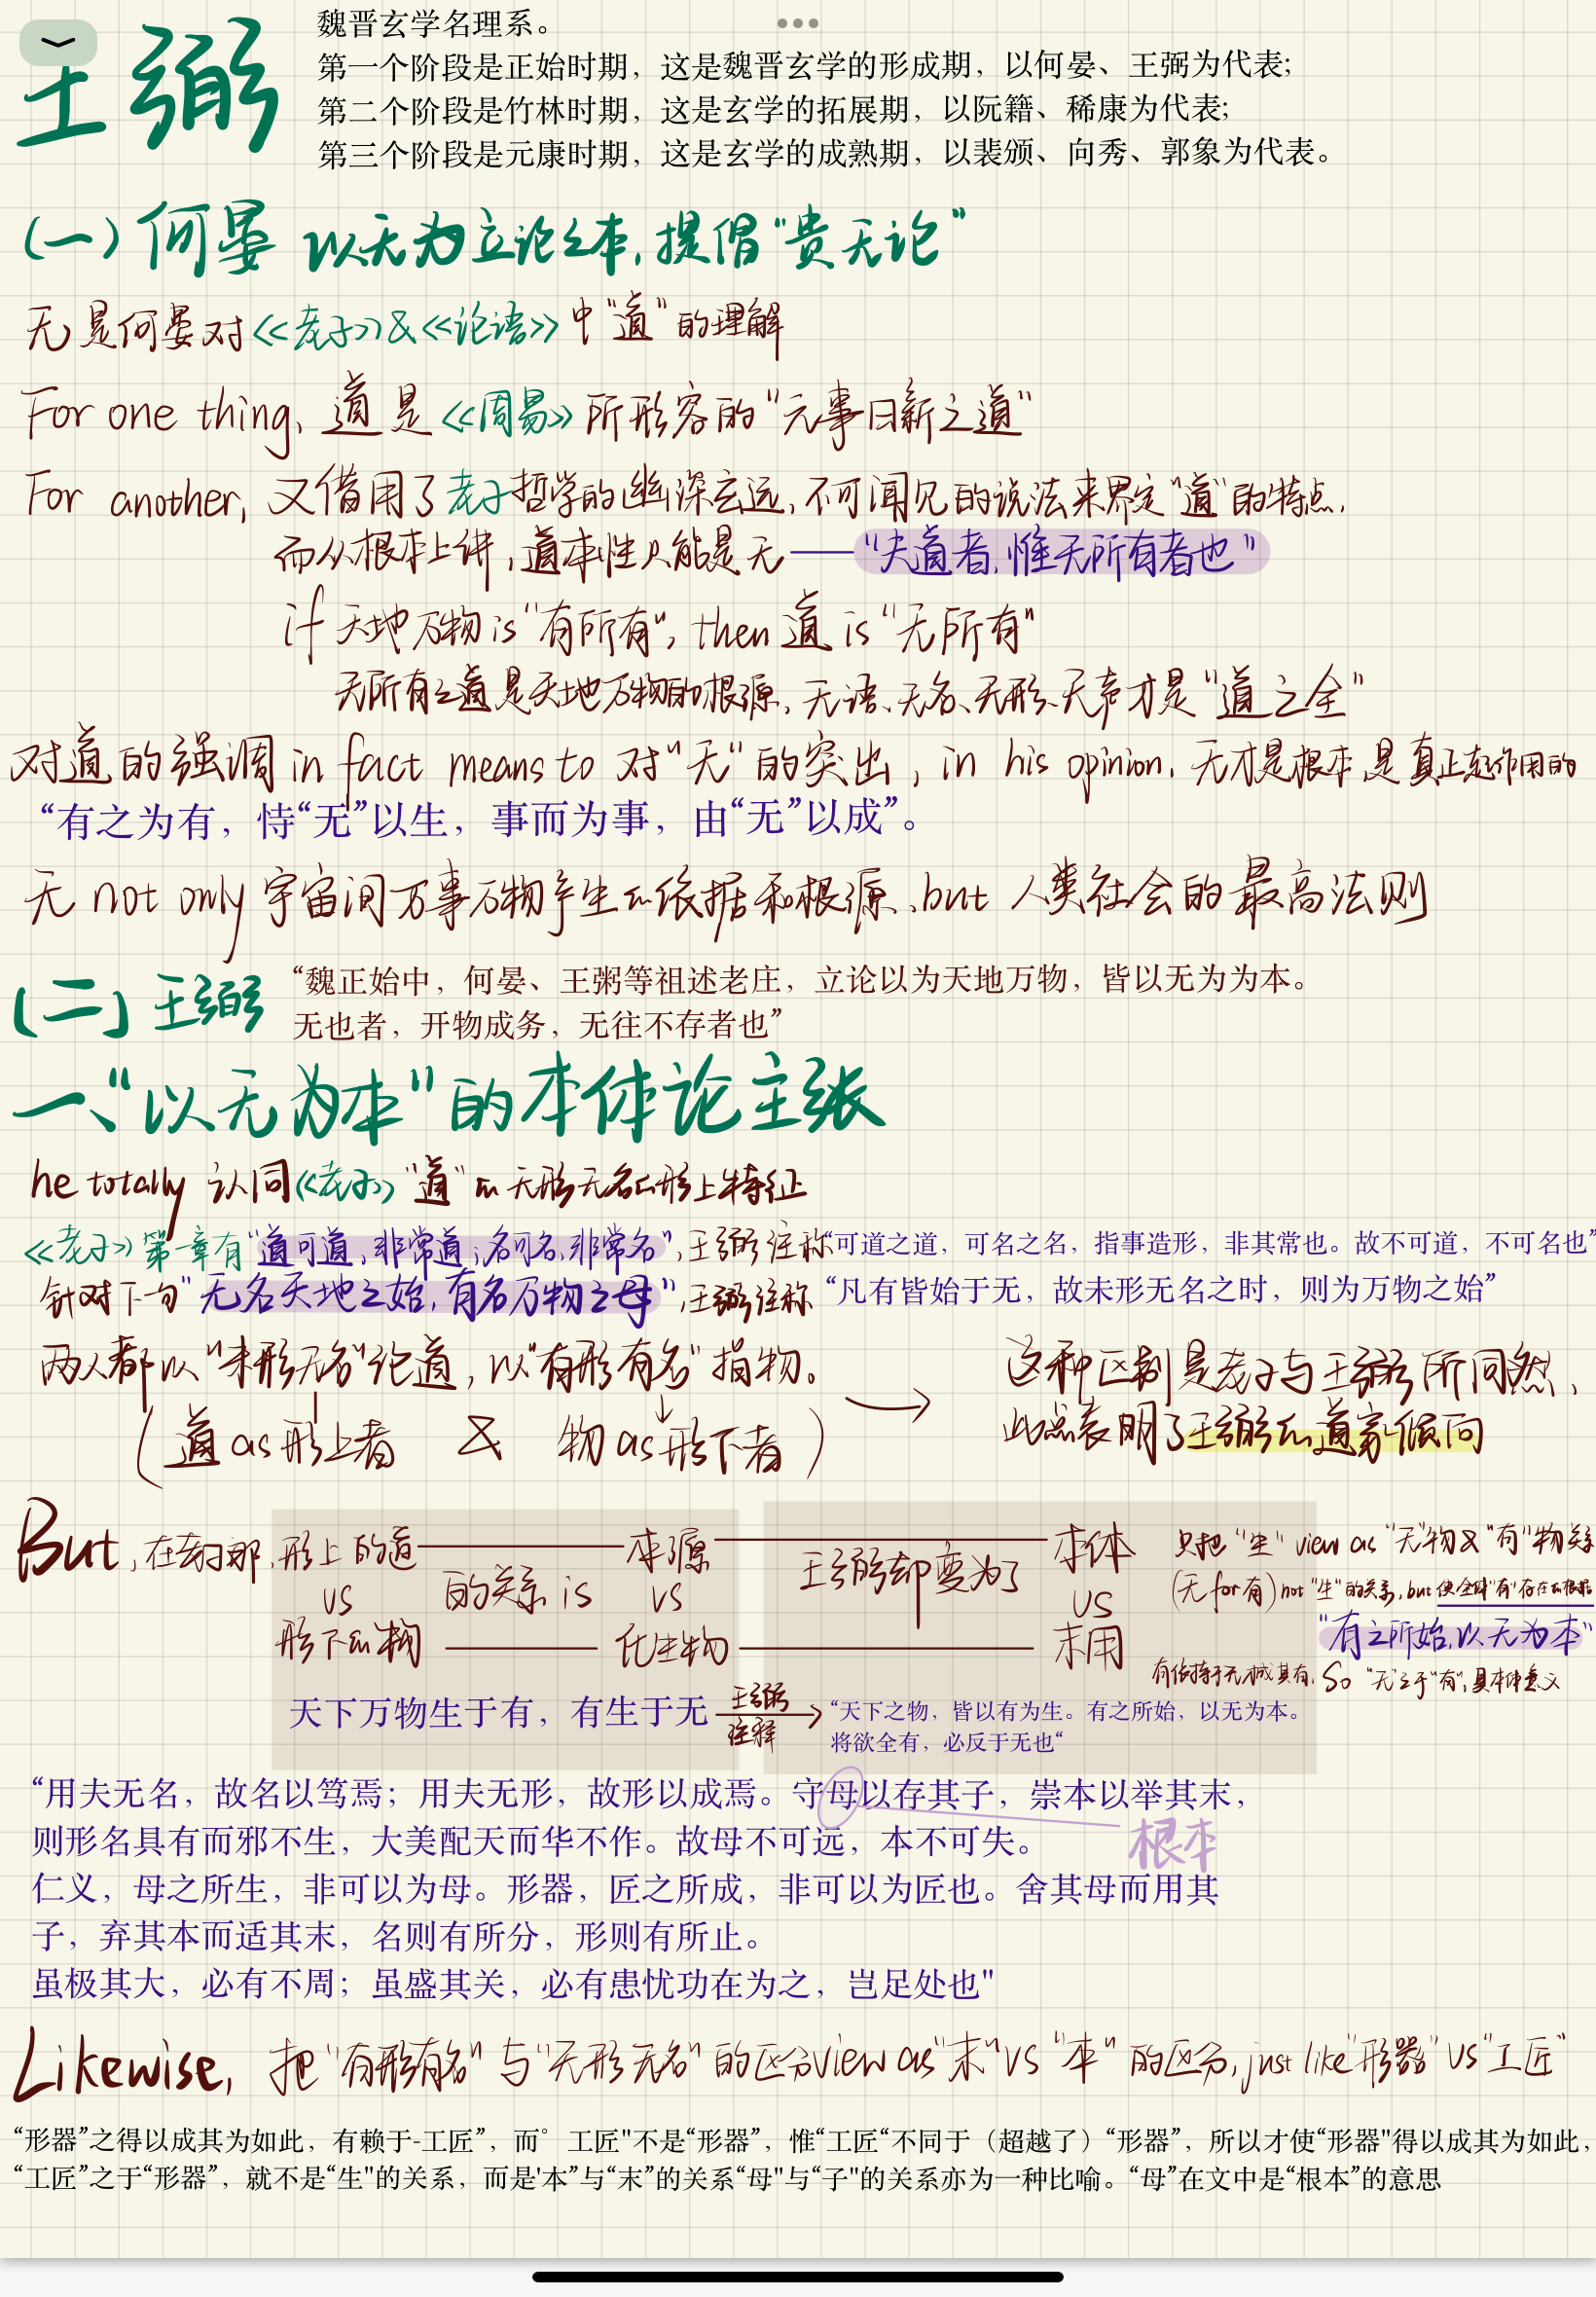 王弼
魏晋玄学名理系。
第一个阶段是正始时期，这是魏晋玄学的形成期，以何晏、王弼为代表;
第二个阶段是竹林时期，这是玄学的拓展期，以阮籍、稀康为代表;
第三个阶段是元康时期，这是玄学的成熟期，以裴颁、向秀、郭象为代表。
(一) 何晏 以无为立论之本, 提倡“贵无论”
无是何晏对《老子》&《论语》中“道”的理解
For one thing, 道是《周易》所形容的“元事日新之道”
For another, 又借用了老子哲学的幽深玄远、不可闻见的说法来界定“道”的特点,
而从根本上讲, 道本性只能是无——“夫道者, 惟无所有者也”
if 天地万物 is “有所有”, then 道 is “无所有”
无所有之道是天地万物的根源, 无语、无名、无形、无声才是“道之全”
对道的强调 in fact means to 对“无”的突出, in his opinion, 无才是根本,是真正起作用的
“有之为有，恃“无”以生，事而为事，由“无”以成”。
无 not only 宇宙间万事万物产生的依据和根源, but 人类社会的最高法则
(二) 王弼
“魏正始中，何晏、王粥等祖述老庄，立论以为天地万物，皆以无为为本。
无也者，开物成务，无往不存者也”
一、“以无为本”的本体论主张
he totally 认同《老子》“道”的无形无名的形上特征
《老子》第一章有“道可道, 非常道; 名可名, 非常名”, 王弼注称“可道之道，可名之名，指事造形，非其常也。故不可道，不可名也”
针对下句“无名天地之始, 有名万物之母”, 王弼注称“凡有皆始于无，故未形无名之时，则为万物之始”
两人都以“未形无名”论道, 以“有形有名”指物。
(道 as 形上者 & 物 as 形下者)
这种区别是老子与王弼所同然、
此点表明了王弼的道家倾向
But, 在老子那, 形上的道 vs 形下的物 的关系 is 本源 vs 化生物 王弼却变为了 本体 vs 末用
只把“生” view as “无”物又“有”物关系
(无 for 有) not “生”的关系, but 使全体“有”存在的根据
“有之所始, 以无为本”
有依持于无成其有, So “无”之于“有”, 具本体意义
天下万物生于有，有生于无 王弼注释 “天下之物，皆以有为生。有之所始，以无为本。
将欲全有，必反于无也“
“用夫无名，故名以笃焉；用夫无形，故形以成焉。守母以存其子，崇本以举其末，
根本
则形名具有而邪不生，大美配天而华不作。故母不可远，本不可失。
仁义，母之所生，非可以为母。形器，匠之所成，非可以为匠也。舍其母而用其
子，弃其本而适其末，名则有所分，形则有所止。
虽极其大，必有不周；虽盛其关，必有患忧功在为之，岂足处也"
Likewise, 把“有形有名”与“无形无名”的区分 view as “末” vs “本”的区分, just like “形器” vs “工匠”
“形器”之得以成其为如此，有赖于-工匠”，而°工匠"不是“形器”，惟“工匠“不同于（超越了）“形器”，所以才使“形器"得以成其为如此，
“工匠”之于“形器”，就不是“生"的关系，而是'本”与“末”的关系“母"与“子"的关系亦为一种比喻。“母”在文中是“根本”的意思